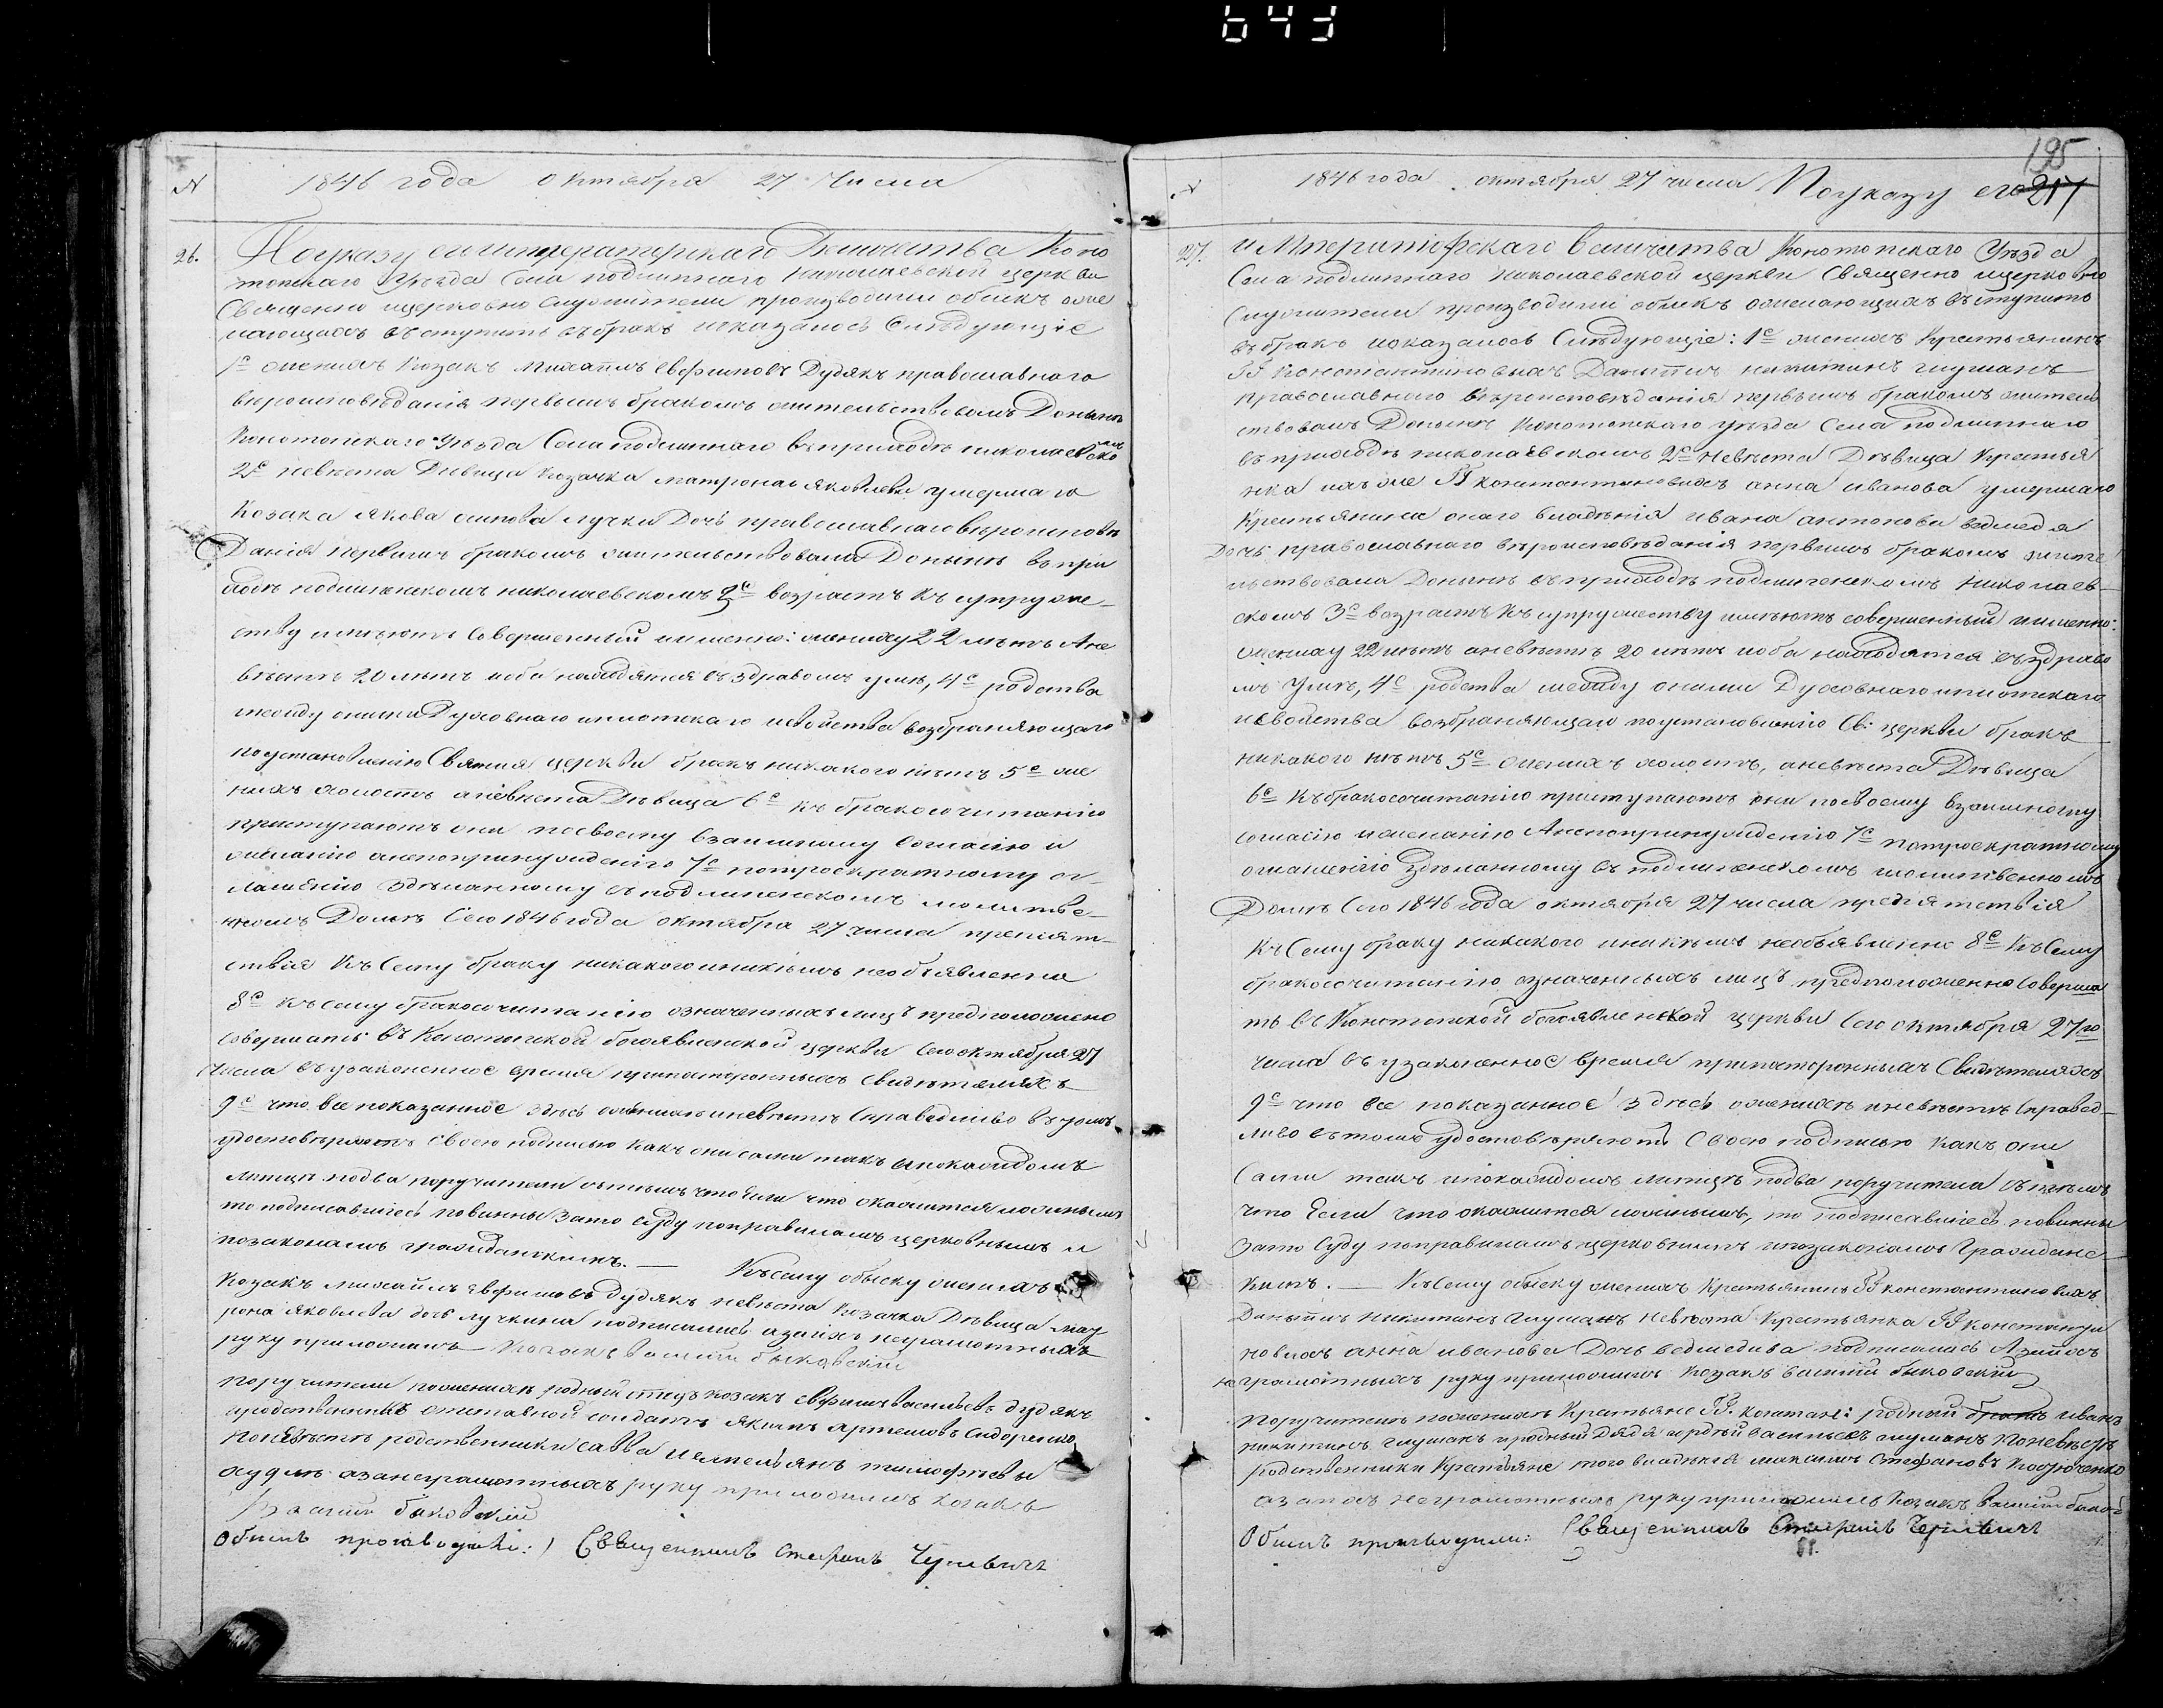 643
195
217
N 1846 года октября 27 числа
26. По указу его императорского Величества Коно
топскаго Уезда Села подлипнаго Николаевской церкви
Священно ицерковно служители производили обыскъ ожe
лающихъ вступить въ бракъ иоказалось Следующіе
1е женихъ Козакъ Михаилъ Евфимовъ Дудякъ православнаго
вероисповеданія первымъ бракомъ жительствовалъ Доныне
Конотопскаго Уезда Села подлипнаго въ приходе николаевском
2е невеста Девица Козачка матрона яковлева умершаго
Козака Якова осипова лучки Дочь православнаго вероиспове
Данія первымъ бракомъ жительствовала Доныне въ при
ходе подлипенскомъ николаевскомъ 3е возрастъ къ супруже-
ству имеютъ Совершенный именно: жениху 22 летъ Ане
весте 20 летъ иоба находятся въ здравомъ уме, 4е родства
между ними Духовнаго иплотскаго исвойства возбраняющаго
по установленію Святыя церкви бракъ никакого нетъ 5е же
нихъ холостъ аневеста Девица 6е къ бракосочитанію
приступаютъ они по своему взаимному Согласію и
желанію анепопринужденію 7е потроекратному ог-
лашенію зделанному въ подлипенскомъ молитве-
нномъ Доме Сего 1846 года октября 27 числа препят-
ствія къ Сему браку никакого иникемъ необъявленно
8е къ сему бракосочитанію означенныхъ лицъ предположено
Совершать въ Конотопской богоявленской церкви Сего октября 27
Числа въ узаконенное время припосторонныхъ Свидетеляхъ
9е что все показанное здесь ожениxе иневесте Справедливо въ томъ
удостоверяютъ своею подписью какъ они сами такъ ипокаждомъ
лице подва поручителя стемъ что Если что окажится ложнымъ
то подписавшіесь повинны Зато суду поправиламъ церковнымъ и
позаконамъ гражданскимъ. — Къ сему обыску женихъ
Козакъ михаилъ Евфимовъ Дудякъ невеста Козачка Девица мат
рона Яковлева дочь лучкина подписались азаихъ неграмотныхъ
руку приложилъ Козакъ василий быковский
поручители поженихе родный отецъ козакъ Евфимъ васильевъ дудякъ
иродственникъ отставной солдатъ Якимъ артемовъ Сидоренко
Поневесте родственники Савва иемельянъ тимофеевы
азанеграмотныхъ руку приложилъ козакъ
Василий быковский
Обыскъ производили: Священникъ Стефанъ
N 1846 года октября 27 числа По указу его
27. иМператорскаго величества Конотопскаго Уезда
Села подлипнаго Николаевской церкви Священно ицерковно
Служители производили обыскъ ожелающихъ вступить
въ бракъ иоказалось Следующіе: 1е женихъ Крестьянинъ
ГГ Константиновыхъ Даниилъ никитинъ глушакъ
православнаго вероисповеданія первымъ бракомъ жител
ствовалъ Доныне Конотопскаго уезда Села подлипнаго
въ приходе николаевскомъ 2е невеста Девица Крестья
нка ихъ же ГГ константиновыхъ анна иванова умершаго
Крестьянина онаго владенія ивана антонова ведмедя
Дочь православнаго вероисповеданія первымъ бракомъ жите
льствовала Доныне въ приходе подлипенскомъ Николаев-
скомъ 3е возрастъ къ супружеству имеютъ совершенный именно:
жениху 22 летъ аневесте 20 летъ иоба находятся въ здраво
мъ Уме, 4е родства между ними Духовнаго иплотскаго
исвойства возбраняющаго поустановленію Св: церкви бракъ
никакого нетъ 5е женихъ холостъ, аневеста Девица
6е къ бракосочитанію приступаютъ они посвоему взаимному
согласію ижеланію Анепопринужденію 7е потроекратному
оглашенію зделанному въ подлипенскомъ молитвенномъ
Доме Сего 1846 года октября 27 числа препятствія
къ Сему браку никакого иникемъ необъявленно 8е Къ Сему
бракосочитанію означенныхъ лицъ предположенно Соверша
ть въ Конотопской богоявленской церкви Сего октября 27го
числа въ узаконенное время припосторонныхъ Свидетеляхъ
9е что все показанное здесь ожениxе иневесте Справед-
ливо втомъ удостоверяютъ Своею подписью какъ они
Сами такъ ипокаждомъ лице подва поручителя стемъ
что Если что окажится ложнымъ, то подписавшіесь повинны
Зато Суду поправиламъ церковнымъ ипозаконамъ Гражданс
кимъ. — Къ Сему обыску женихъ Крестьянинъ ГГ константиновыхъ
Даниилъ Никитинъ Глушакъ Невеста Крестьянка ГГ Константи
новыхъ анна иванова Дочь ведмедива подписались Азаихъ
неграмотныхъ руку приложилъ Козакъ василий быковский
поручители поженихе Крестьяне ГГ. констан: родный братъ иванъ
никитинъ глушакъ иродный Дядя васильевъ глушакъ Поневесте
родственники Крестьяне того владенія максимъ Стефановъ
азаихъ неграмотныхъ руку приложилъ Козакъ василий быков
Обыскъ производили: Священникъ Стефанъ